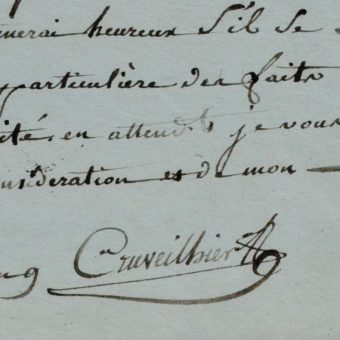 merai heureux s'il se
particulière des faits
ité. en attendt je vous
nsideration et de mon
Cruveilhier